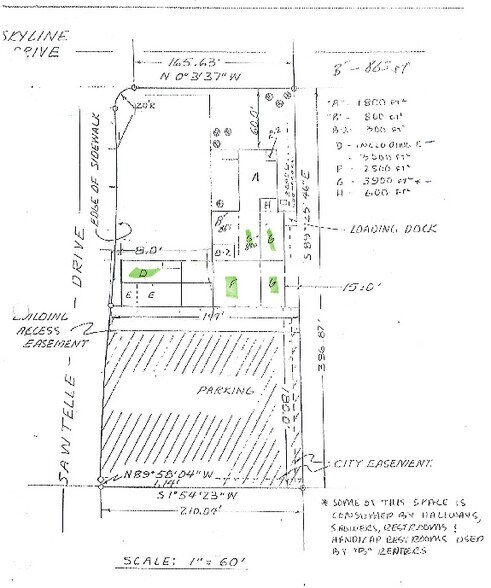 SKYLINE
DRIVE
165.63'
N 0°3'37" W
B - 865 ft
20'R
"A" - 1800 FT²
"B" - 860 FT²
B-2 - 300 FT²
D - INCLUDING E -
- 3500 FT²
F - 2500 FT²
G - 3900 FT² *
H - 600 FT²
60.0'
EDGE OF SIDEWALK
A
H
S 89°-25'-46" E
LOADING DOCK
B
G
G
B-2
8.0'
D
E
E
F
G
15.0'
DRIVE
BUILDING
ACCESS
EASEMENT
147'
396.87'
PARKING
180.0'
SAWTELLE
CITY EASEMENT
N 89°-58'-04" W
1.14'
S 1°54'23" W
210.04'
* SOME OF THIS SPACE IS
CONSUMED BY HALLWAYS,
SHOWERS, RESTROOMS &
HANDICAP RESTROOMS USED
BY "B" RENTERS
SCALE: 1" = 60'